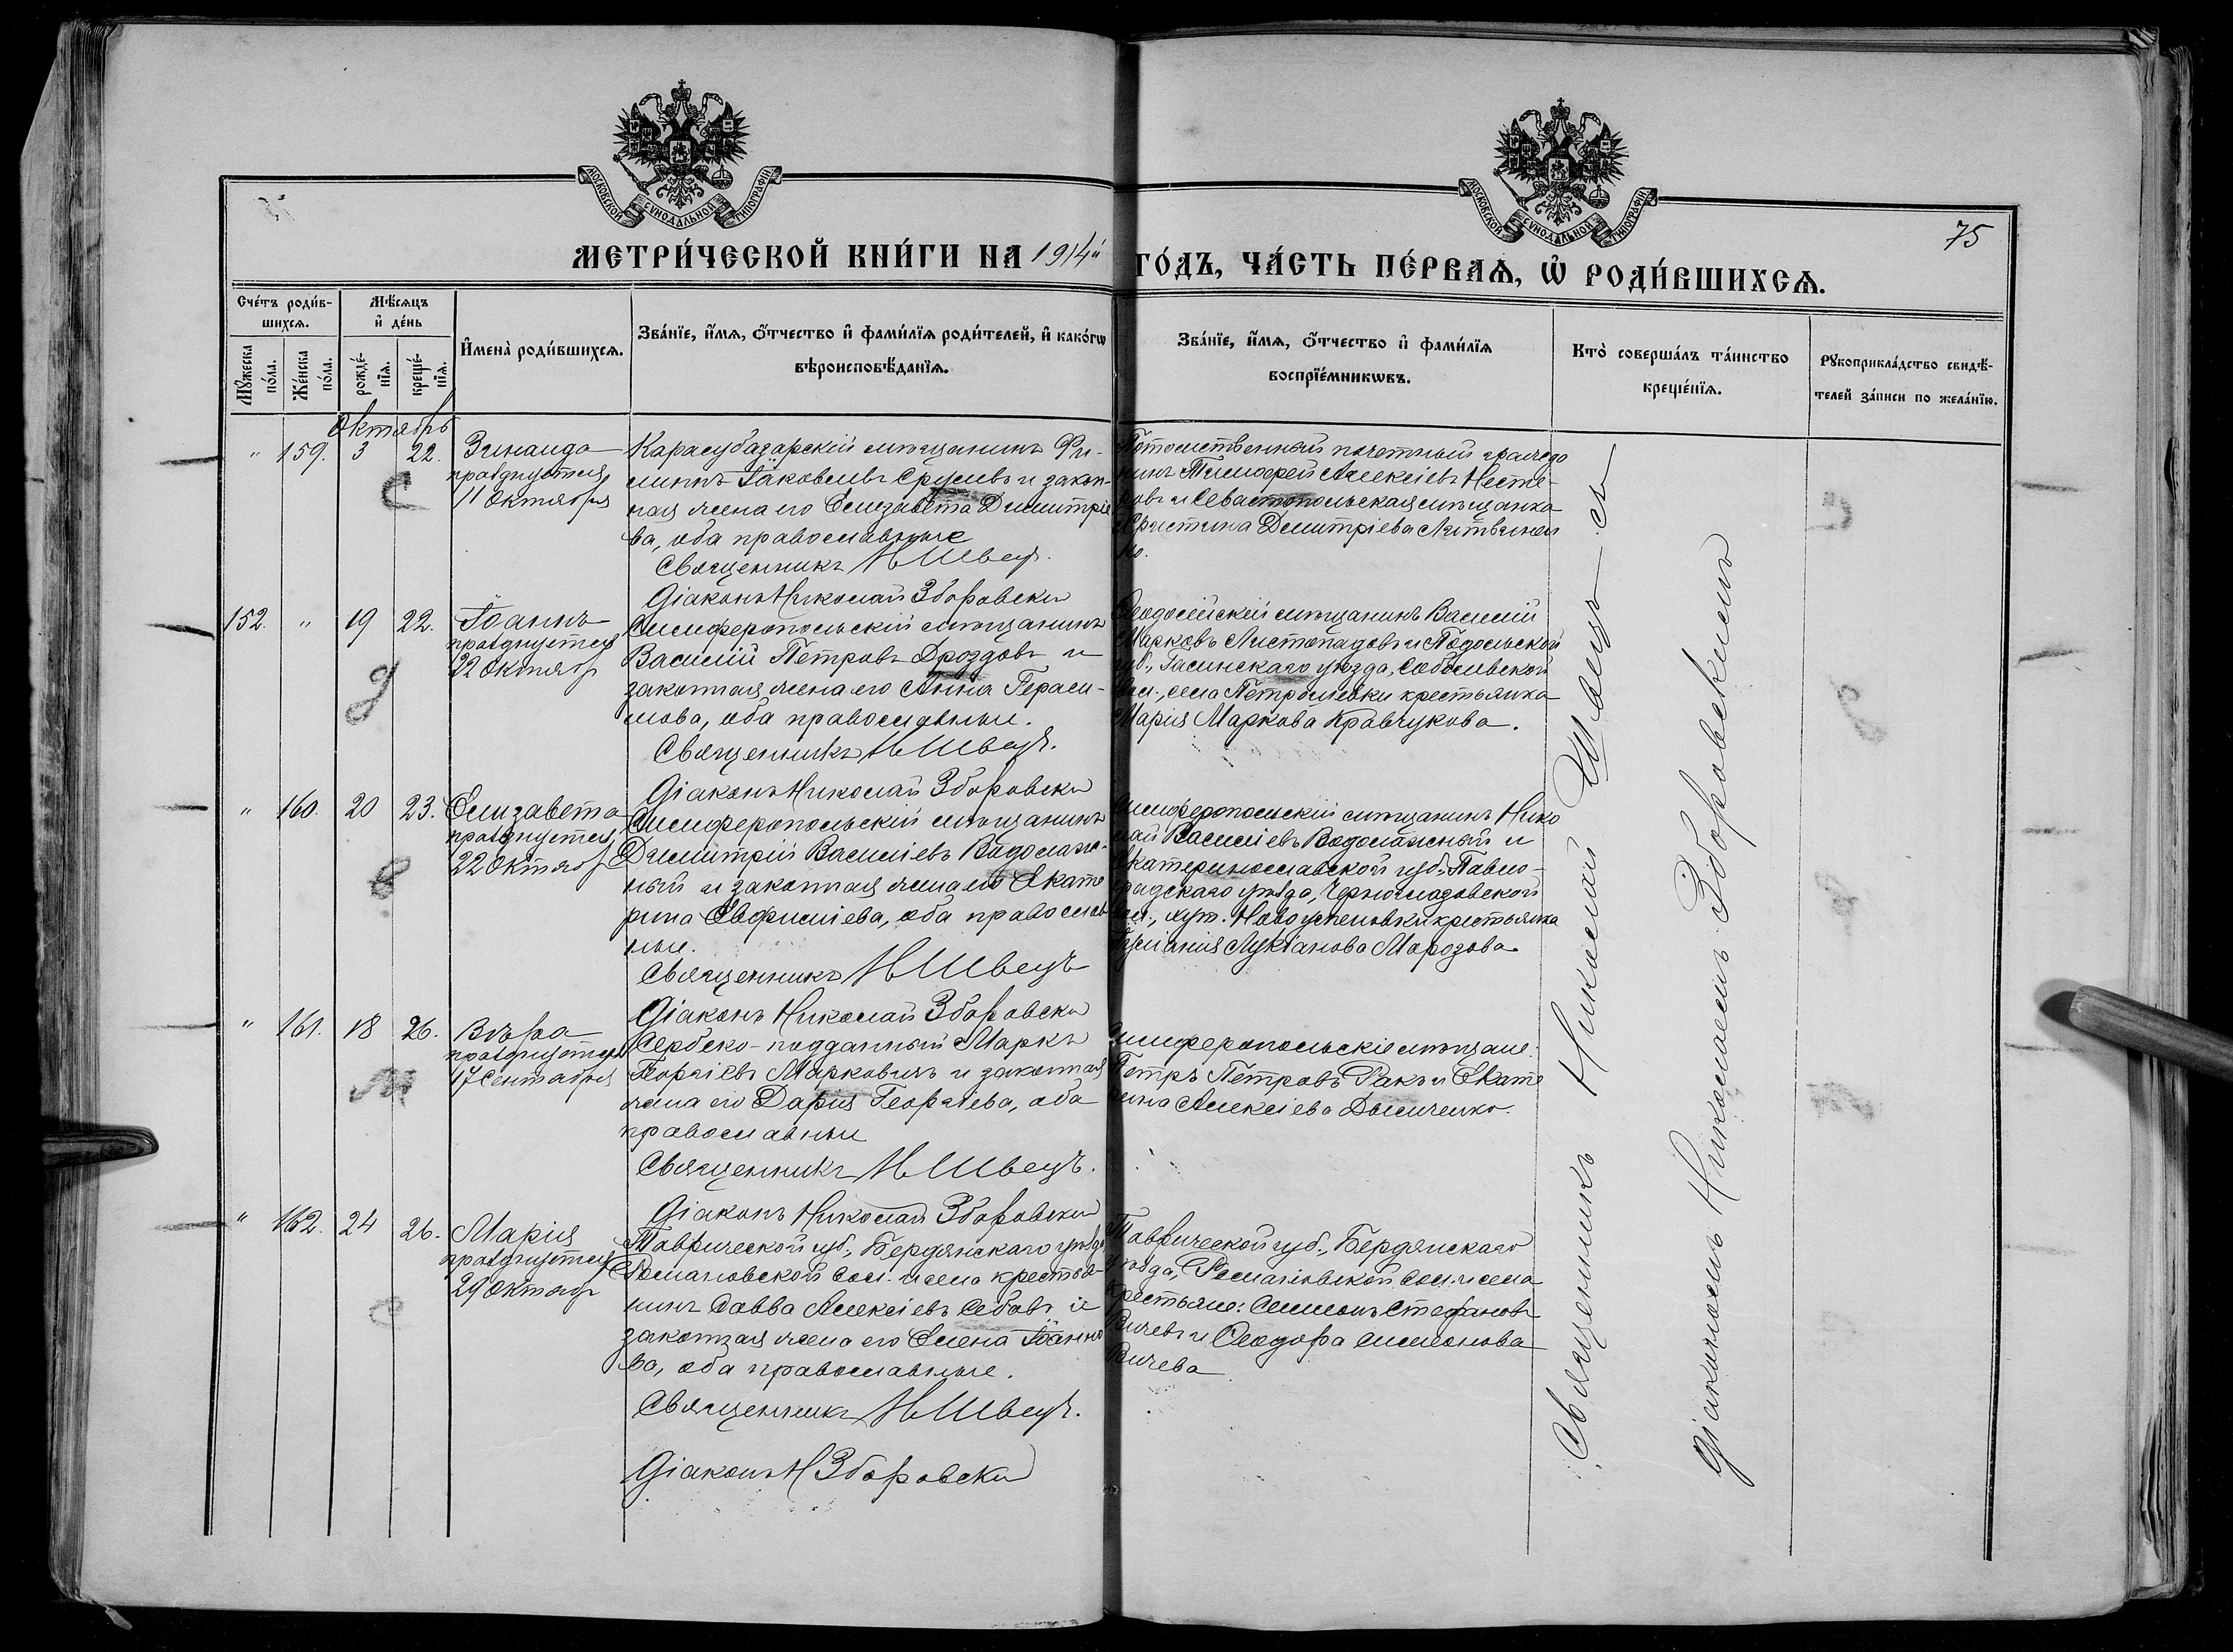 МОСКОВСКОЙ СѴНОДАЛЬНОЙ ТИПОГРАФІИ
МОСКОВСКОЙ СѴНОДАЛЬНОЙ ТИПОГРАФІИ
75
МЕТРИ́ЧЕСКОЙ КНИ́ГИ НА 1914й ГО́ДЪ, ЧА́СТЬ ПЕ́РВАѦ, Ѡ҆ РОДИ́ВШИХСѦ.
Сче́тъ роди́в-
шихсѧ.
Мѣ́сѧцъ
и҆ де́нь
Мꙋ́жеска по́ла.
Же́нска по́ла.
рожде́-
нїѧ.
креще́-
нїѧ.
И҆мена̀ роди́вшихсѧ.
Зва́нїе, и҆́мѧ, ѻ҆́тчество и҆ фами́лїѧ роди́телей, и҆ како́гѡ
вѣроисповѣ́данїѧ.
Зва́нїе, и҆́мѧ, ѻ҆́тчество и҆ фами́лїѧ
воспрїе́мникѡвъ.
Кто̀ соверша́лъ та́инство
креще́нїѧ.
Рꙋкоприкла́дство свидѣ́-
телей за́писи по жела́нїю.
Октябрь
" 159. 3 22. Зинаида
празднуется
11 Октября
С
Карасубазарскій мѣщанинъ Фи-
липпъ Іаковлевъ Срулевъ и закон-
ная жена его Елизавета Димитріе
ва, оба православные
Священникъ Н Швецъ.
Діаконъ Николай Зборовски
Потомственный почетный гражда
нинъ Тимофей Алексіевъ Несте-
ровъ и Севастопольская мѣщанка
Христина Димитріева Литвинен
ко.
152. " 19 22. Іоаннъ
празднуется
22 Октябр
Д
Симферопольскій мѣщанинъ
Василій Петровъ Дроздовъ и
законная жена его Анна Гераси-
мова, оба православные.
Священникъ Н Швецъ.
Діаконъ Николай Зборовски
Ѳеодосійскій мѣщанинъ Василій
Марковъ Листопадовъ и Подольской
губ., Гасинскаго уѣзда, Соболевской
вол., села Петрошевки крестьянка
Марія Маркова Кравчукова.
" 160. 20 23. Елизавета
празднуется
22 Октябр
В
Симферопольскій мѣщанинъ
Димитрій Василіевъ Водолаж-
ный и законная жена его Екате
рина Евфиміева, оба православ
ные.
Священникъ Н Швецъ
Діаконъ Николай Зборовски
Симферопольскій мѣщанинъ Нико
лай Василіевъ Водолажный и
Екатеринославской губ., Павло-
градскаго уѣзда, Черноглазовской
вол., хут. Новоуспеновки крестьянка
Іуліанія Лукіанова Марозова
" 161. 18 26. Вѣра
празднуется
17 Сентября
М
Сербско-подданный Маркъ
Георгіевъ Марковичъ и законная
жена его Дарія Георгіева, оба
православные
Священникъ Н Швецъ.
Діаконъ Николай Зборовски
Симферопольскіе мѣщане:
Петръ Петровъ Ракъ и Екате
рина Алексіева Дымченко.
" 162. 24 26. Марія
празднуется
29 Октябр
С
Таврической губ., Бердянскаго уѣзда
Романовской вол. и села крестья-
нинъ Савва Алексіевъ Себовъ и
законная жена его Елена Іоанно
ва, оба православные.
Священникъ Н Швецъ.
Діаконъ Н Зборовски
Таврической губ., Бердянскаго
уѣзда, Романовской вол. и села
крестьяне: Симеонъ Стефановъ
Вичевъ и Ѳеодора Симеонова
Вичева
Священникъ Николай Швецъ съ
діакономъ Николаемъ Зборовскимъ